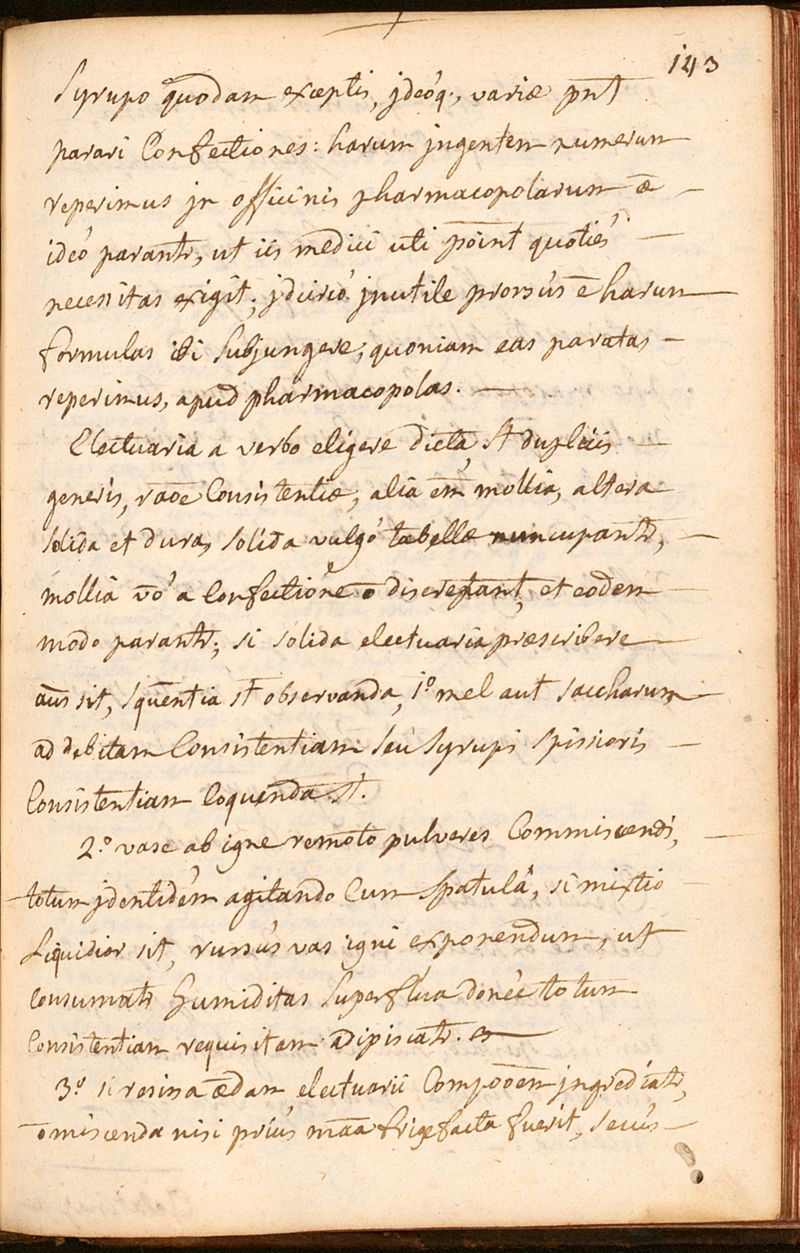 143
Syrupo quodam exceptis, jdeóq;, variæ pñt
parari Confectiones: harum jngentem numerum
reperimus jn officinis pharmacopolarum æ
ideó parantr, ut iis medici uti põint quotiés
necessitas exigit; jdcircó jnutile prorsús ē harum
formulas ibi Subjungere, quoniam eas paratas
reperimus, apud pharmacopolas.
Electuaria a verbo eligere dicta, st̄ duplicis
generis, raõe Consistentiæ, alia em̄ mollia, altera
solida et dura, solida vulgó tabellæ nuncupantr,
mollia vō a Confectione ō discrepant, et eodem
modo parantr; si solida electuaria præscribere
aūs sit, squentia st̄ observanda, 1.º mel aut saccharum
ad debitam Consistentiam seu Syrupi spissioris
Consistentiam Coquenda st̄.
2.º vase ab igne remoto pulveres Commiscendi,
totum jdentidém agitando Cum spatulâ, si mixtio
Liquidior sit, rursús vas igni exponendum, ut
Consumatr humiditas Superflua donéc totum
Consistentiam requisitam adipiscatr.
3.º si resina ædam electuarii Compõõem jngrediatr,
ō miscenda nisi priús māā frigefacta fuerit, secús